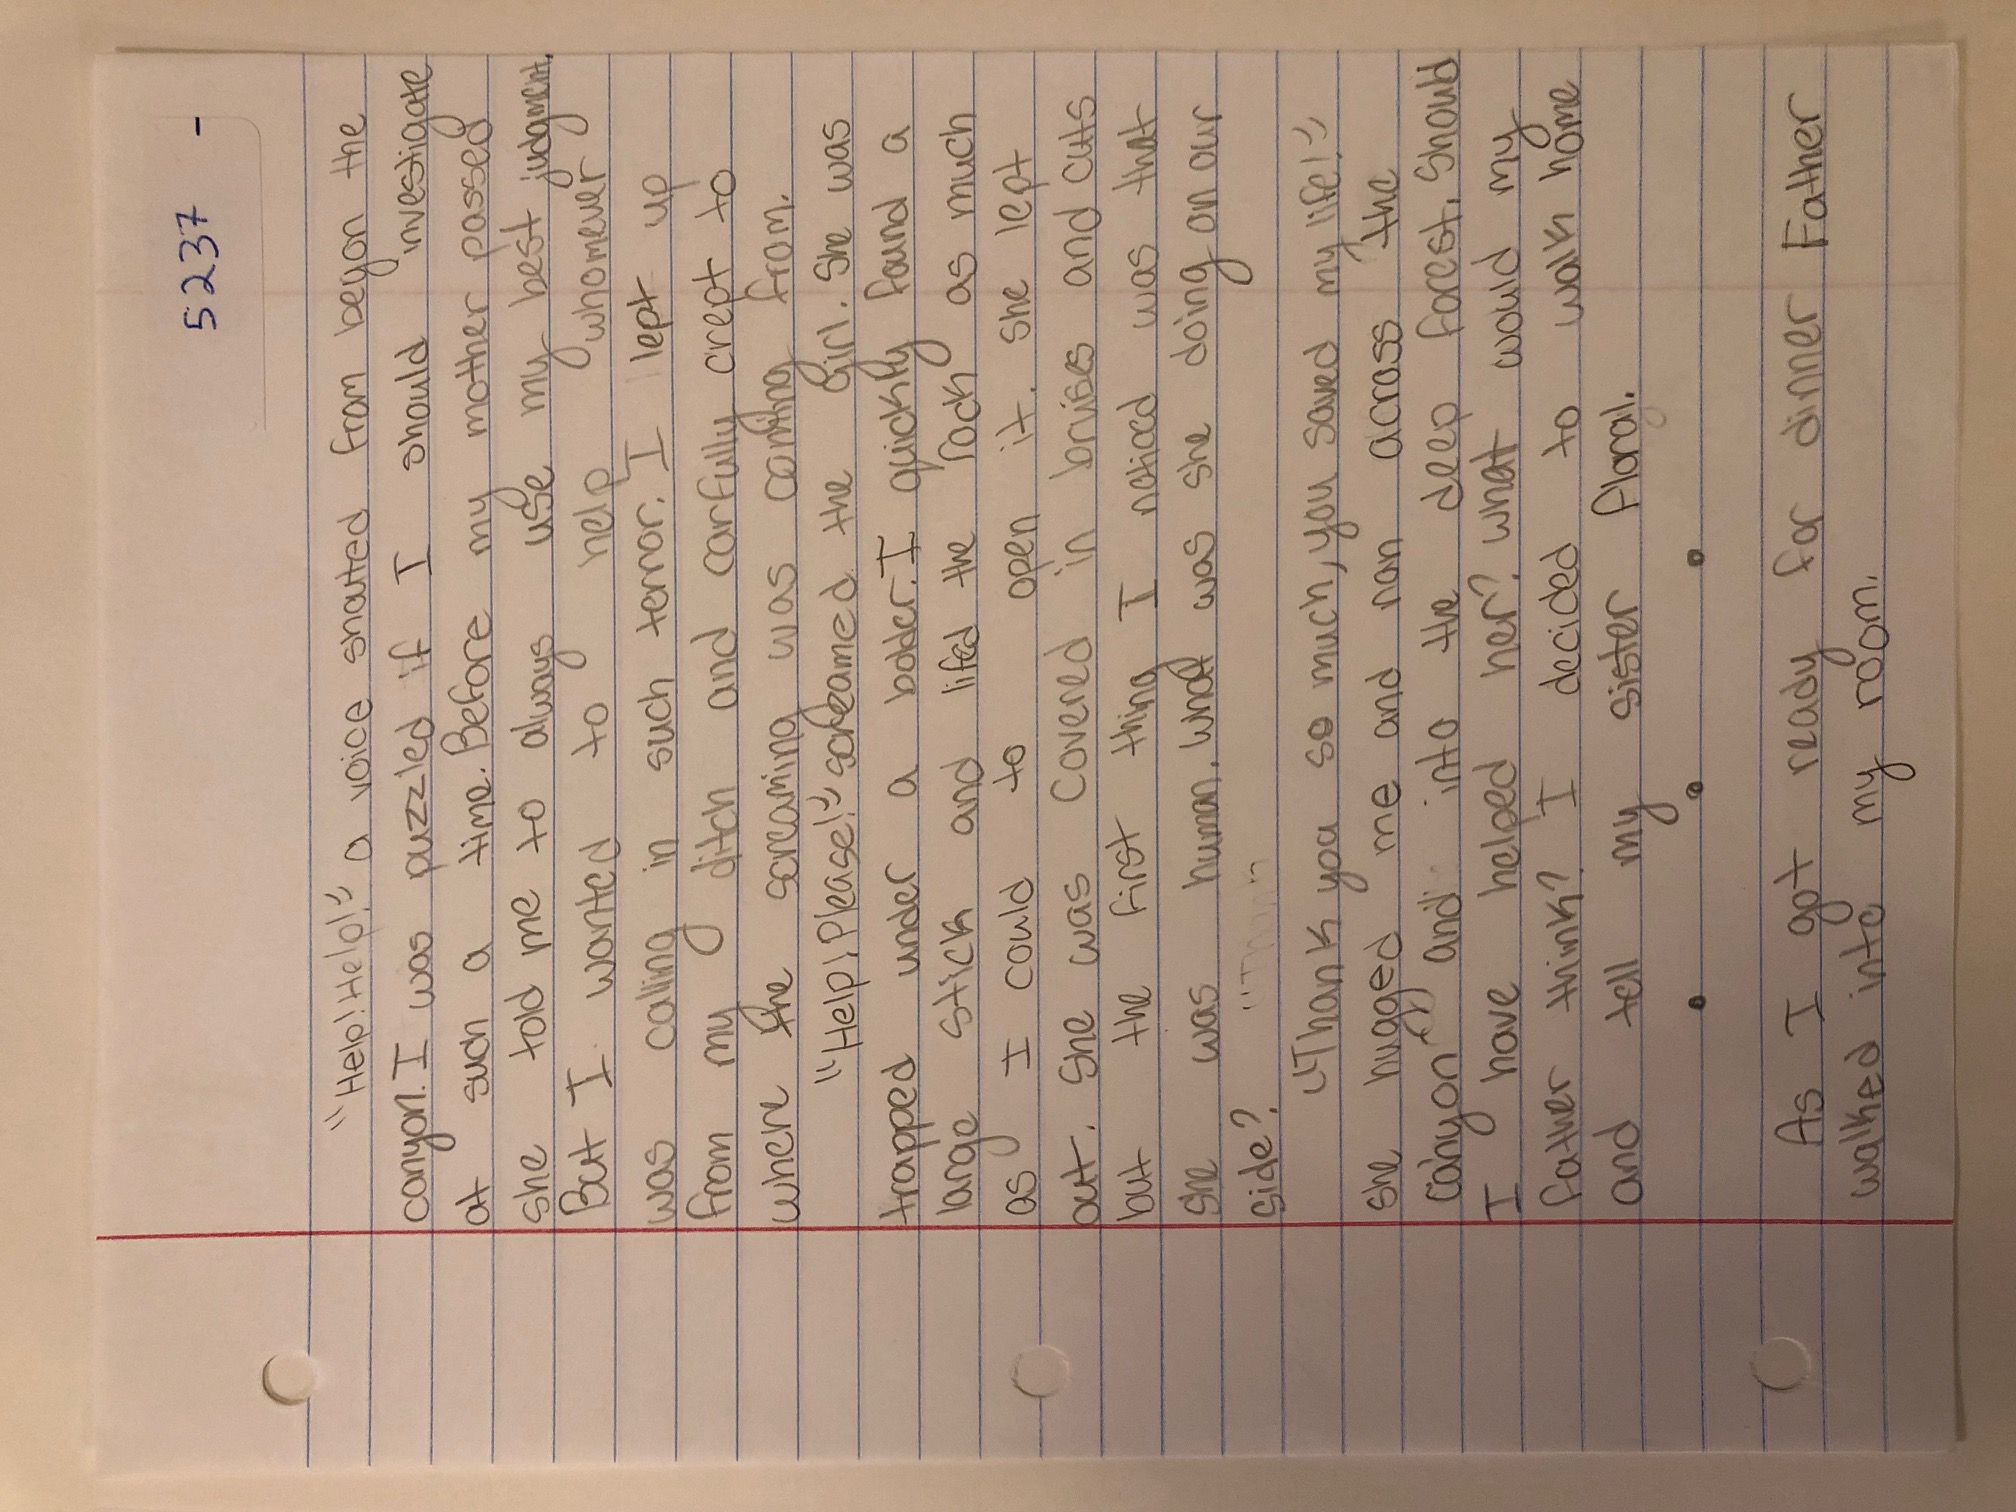 5237 -
"Help! Help!" a voice shouted from beyon the
canyon. I was puzzled if I should investigate
at such a time. Before my mother passed
she told me to always use my best judgment.
But I wanted to help whomever
was calling in such terror. I lept up
from my ditch and carfully crept to
where the screaming was coming from.
"Help! Please!" screamed the girl. She was
trapped under a bolder. I quickly found a
large stick and lifed the rock as much
as I could to open it. She lept
out. She was covered in bruises and cuts
but the first thing I noticed was that
she was human. What was she doing on our
side? "Than"
"Thank you so much, you saved my life!"
she hugged me and ran across the
canyon and into the deep forest. Should
I have helped her? What would my
father think? I decided to walk home
and tell my sister floral.
• • •
As I got ready for dinner Father
walked into my room.